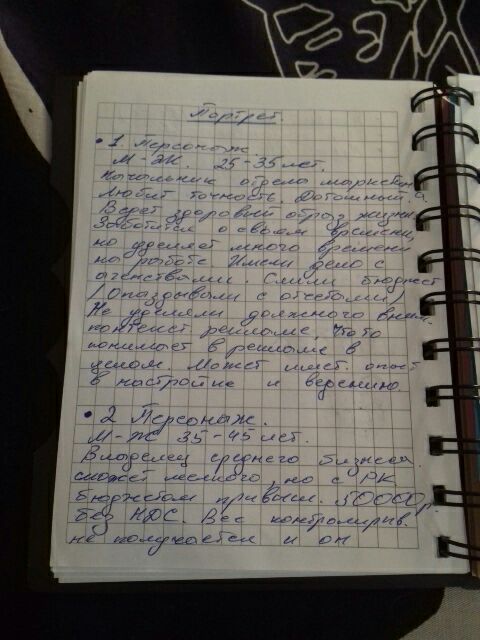 Портрет.
• 1. Персонаж.
М - Ж. 25-35 лет.
Начальник отдела маркетинга
Любит точность. Дотошный
Ведет здоровый образ жизни
Заботится о своем времени,
но уделяет много времени
на работе Имели дело с
агенствами. Слили бюджет
/Опаздывали с отчетами/
Не уделяли должного вним.
контекст рекламе. Что то
понимает в рекламе в
целом. Может имет. опыт
в настройке и ведении.
• 2 Персонаж.
М-Ж 35-45 лет.
Владелец среднего бизнеса.
может мелкого, но с РК
бюджетом привыш. 50000р.
без НДС. Все контролирив.
не получается и он